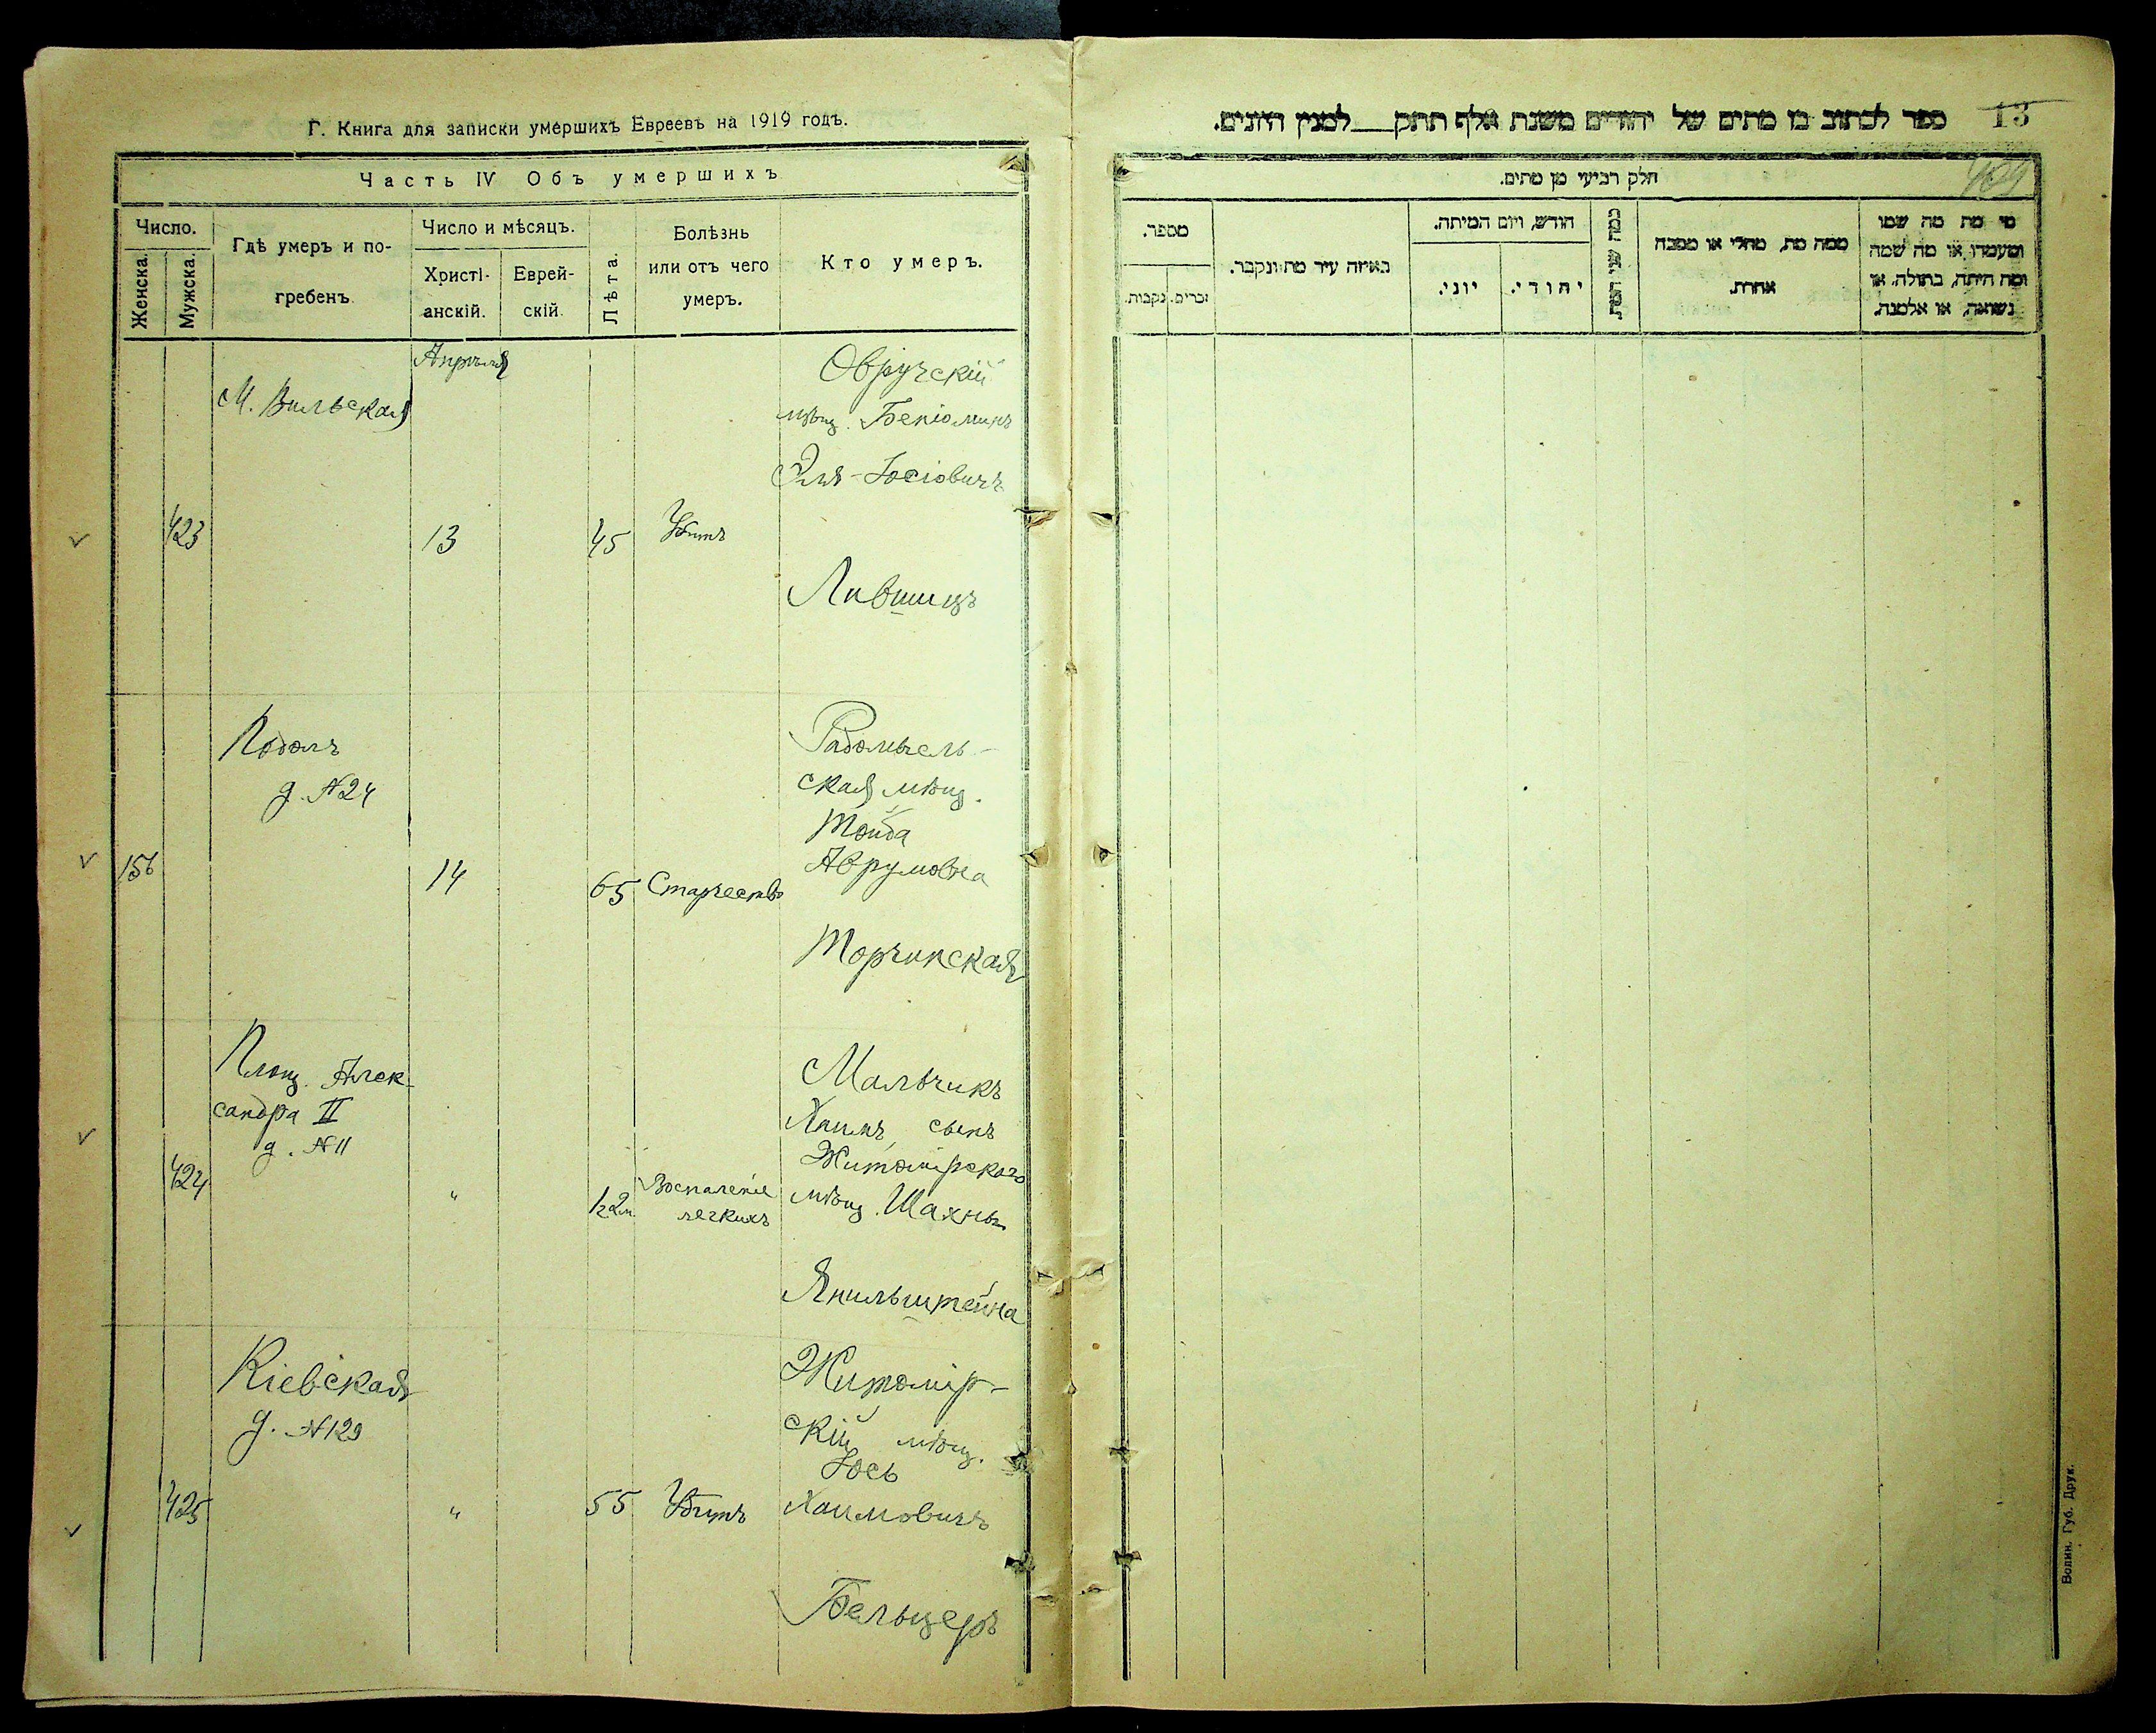 Г. Книга для записки умершихъ Евреевъ на 1919 годъ.
Часть IV Объ умершихъ
Число.
Женска.
Мужска.
Гдѣ умеръ и по-
гребенъ
Число и мѣсяцъ.
Христі-
анскій.
Еврей-
скій.
Лѣта.
Болѣзнь
или отъ чего
умеръ.
Кто умеръ.
Апрѣля
М. Вильская
423
13
45
Убитъ
Овручскій
мѣщ. Беніоминъ
Эля-Іосіовичъ
Лившицъ
Подолъ
д. №24
156
14
65
Старчество
Радомысль-
ская мѣщ.
Тойба
Аврумовна
Торчинская
Площ. Алек-
сандра II
д. №11
424
"
1 г 2 м
Воспаленіе
легкихъ
Мальчикъ
Хаимъ, сынъ
Житомірскаго
мѣщ. Шахны
Якильштейна
Кіевская
д. №129
425
"
55
Убитъ
Житомір-
скій мѣщ.
Іось
Хаимовичъ
Бельцеръ
13
ספר לכתוב בו מתים של יהודים משנת אלף תתק___למנין היונים.
409
חלק רביעי מן מתים.
מי מת מה שמו
ומעמדו או מה שמה
ומה היתה, בתולה, או
נשואה, או אלמנה.
ממה מת, מחלי או מסבה
אחרת.
כמה שני המת
חודש, ויום המיתה.
יהודי.
יוני.
באיזה עיר מת ונקבר.
מספר.
זכרים.
נקבות.
Волин. Губ. Друк.